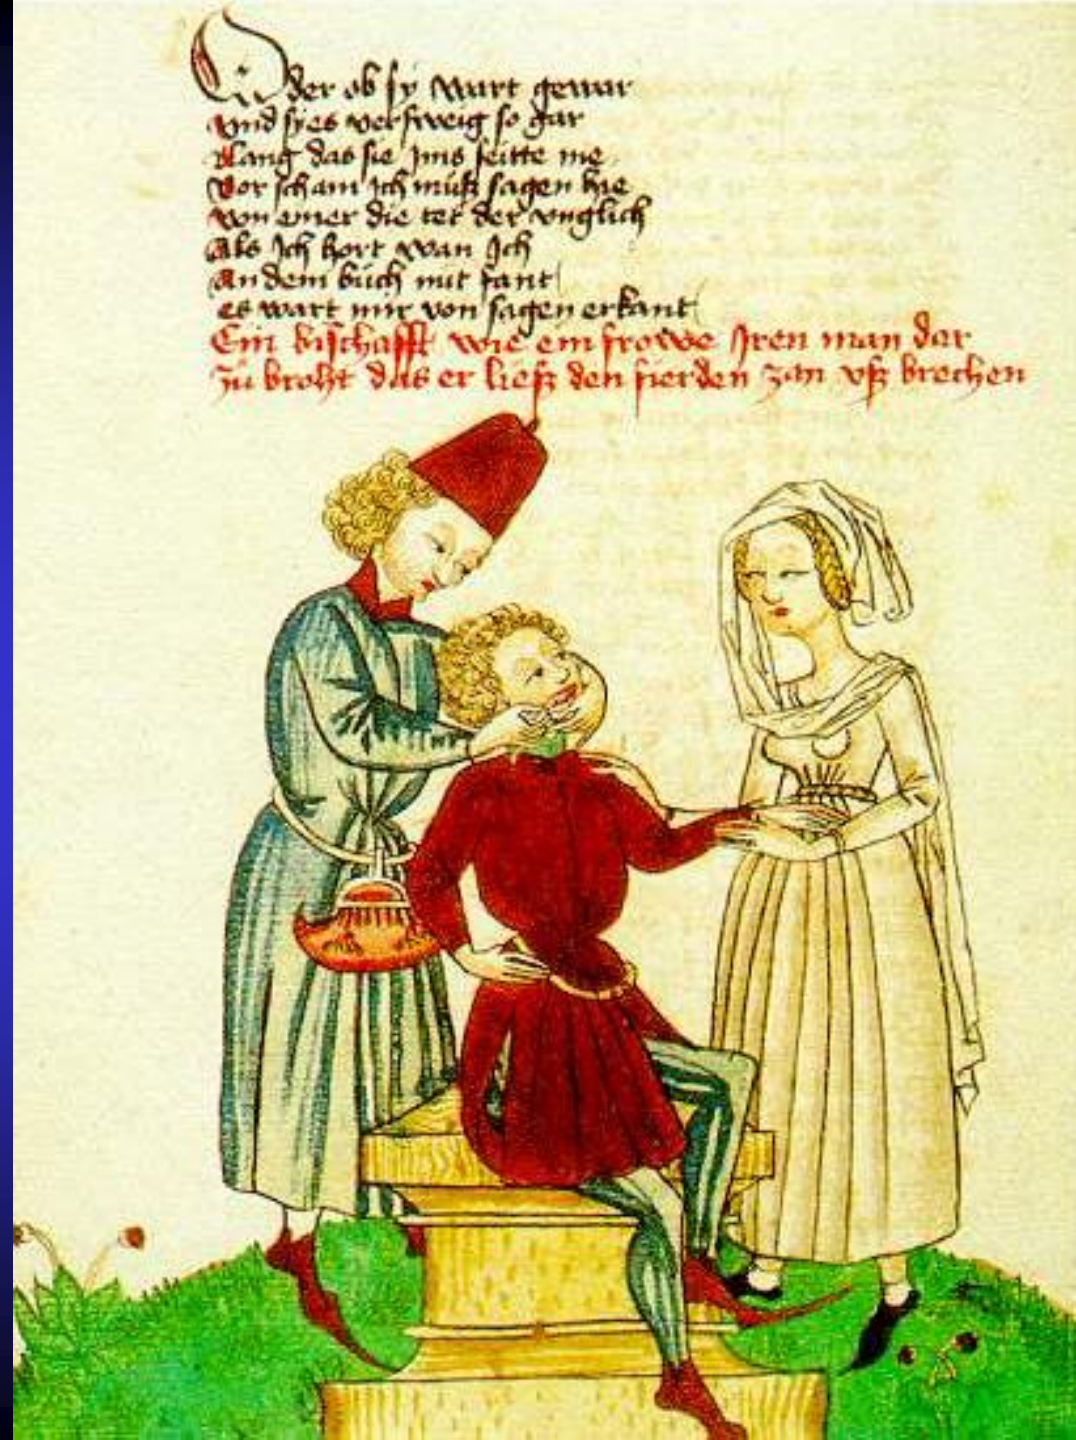 Oder ob sy wart gewar
Und sy es versweig so gar
Alang das sie Ims seitte nie
Vor scham Ich muß sagen hie
von einer die tet der unglich
Als Ich hort wan Ich
An dem büch nut fant
es wart mir von sagen erkant
Ein bischafft wie ein frowe Iren man dar
zü broht das er ließ den fierden zan uß brechen